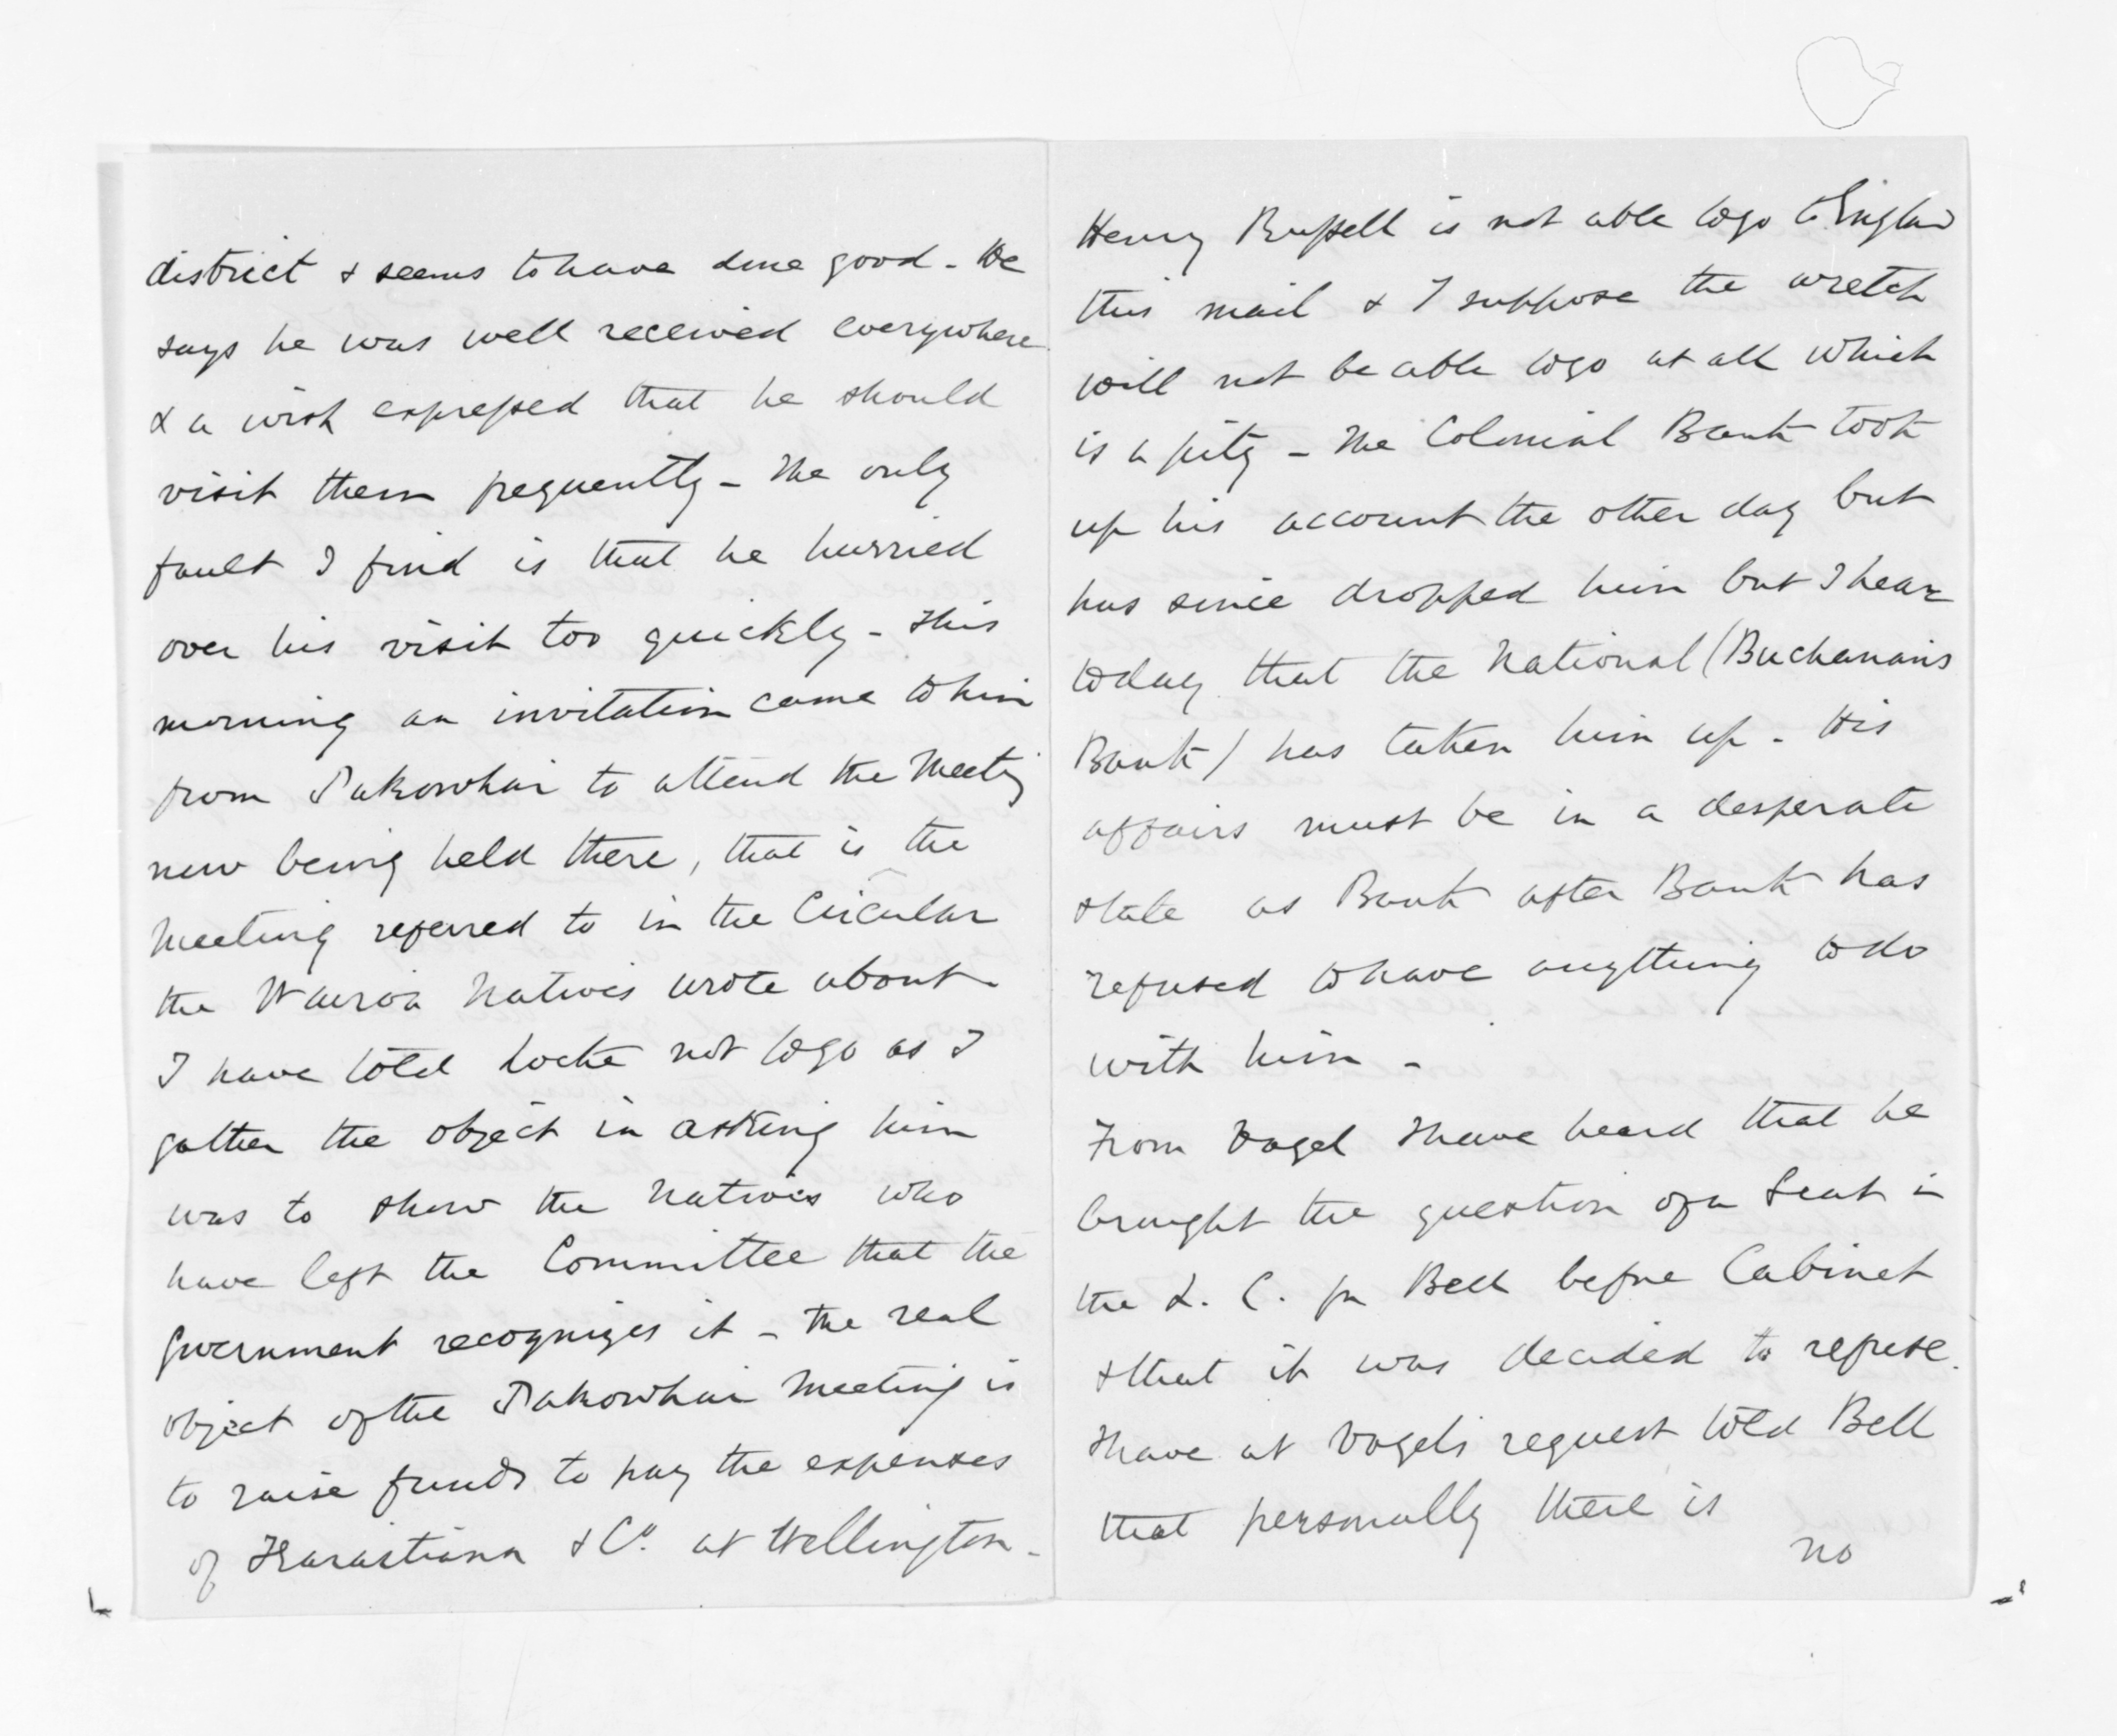 district & seems to have done good - He
says he was well received everywhere
& a wish expressed that he should
visit them frequently - The only
fault I find is that he hurried
over his visit too quickly - This
morning an invitation came to him
from Pakowhai to attend the Meeting
now being held there, that is the
Meeting referred to in the Circular
the Wairoa Natives wrote about -
I have told Locke not to go as I
gather the object in asking him
was to show the Natives who
have left the Committee that the
Government recognizes it - The real
object of the Pakowhai Meeting is
to raise funds to pay the expenses
of Karaitiana & Co. at Wellington -
Henry Russell is not able to go to England
this mail & I suppose the wretch
will not be able to go at all which
is a pity - The Colonial Bank took
up his account the other day but
has since dropped him but I hear
today that the National (Buchanan's
Bank) has taken him up - His
affairs must be in a desperate
state as Bank after Bank has
refused to have anything to do
with him -
From Vogel I have heard that he
brought the question of a Seat in
the L. C. for Bell before Cabinet
& that it was decided to refuse.
I have at Vogel's request told Bell
that personally there is
no